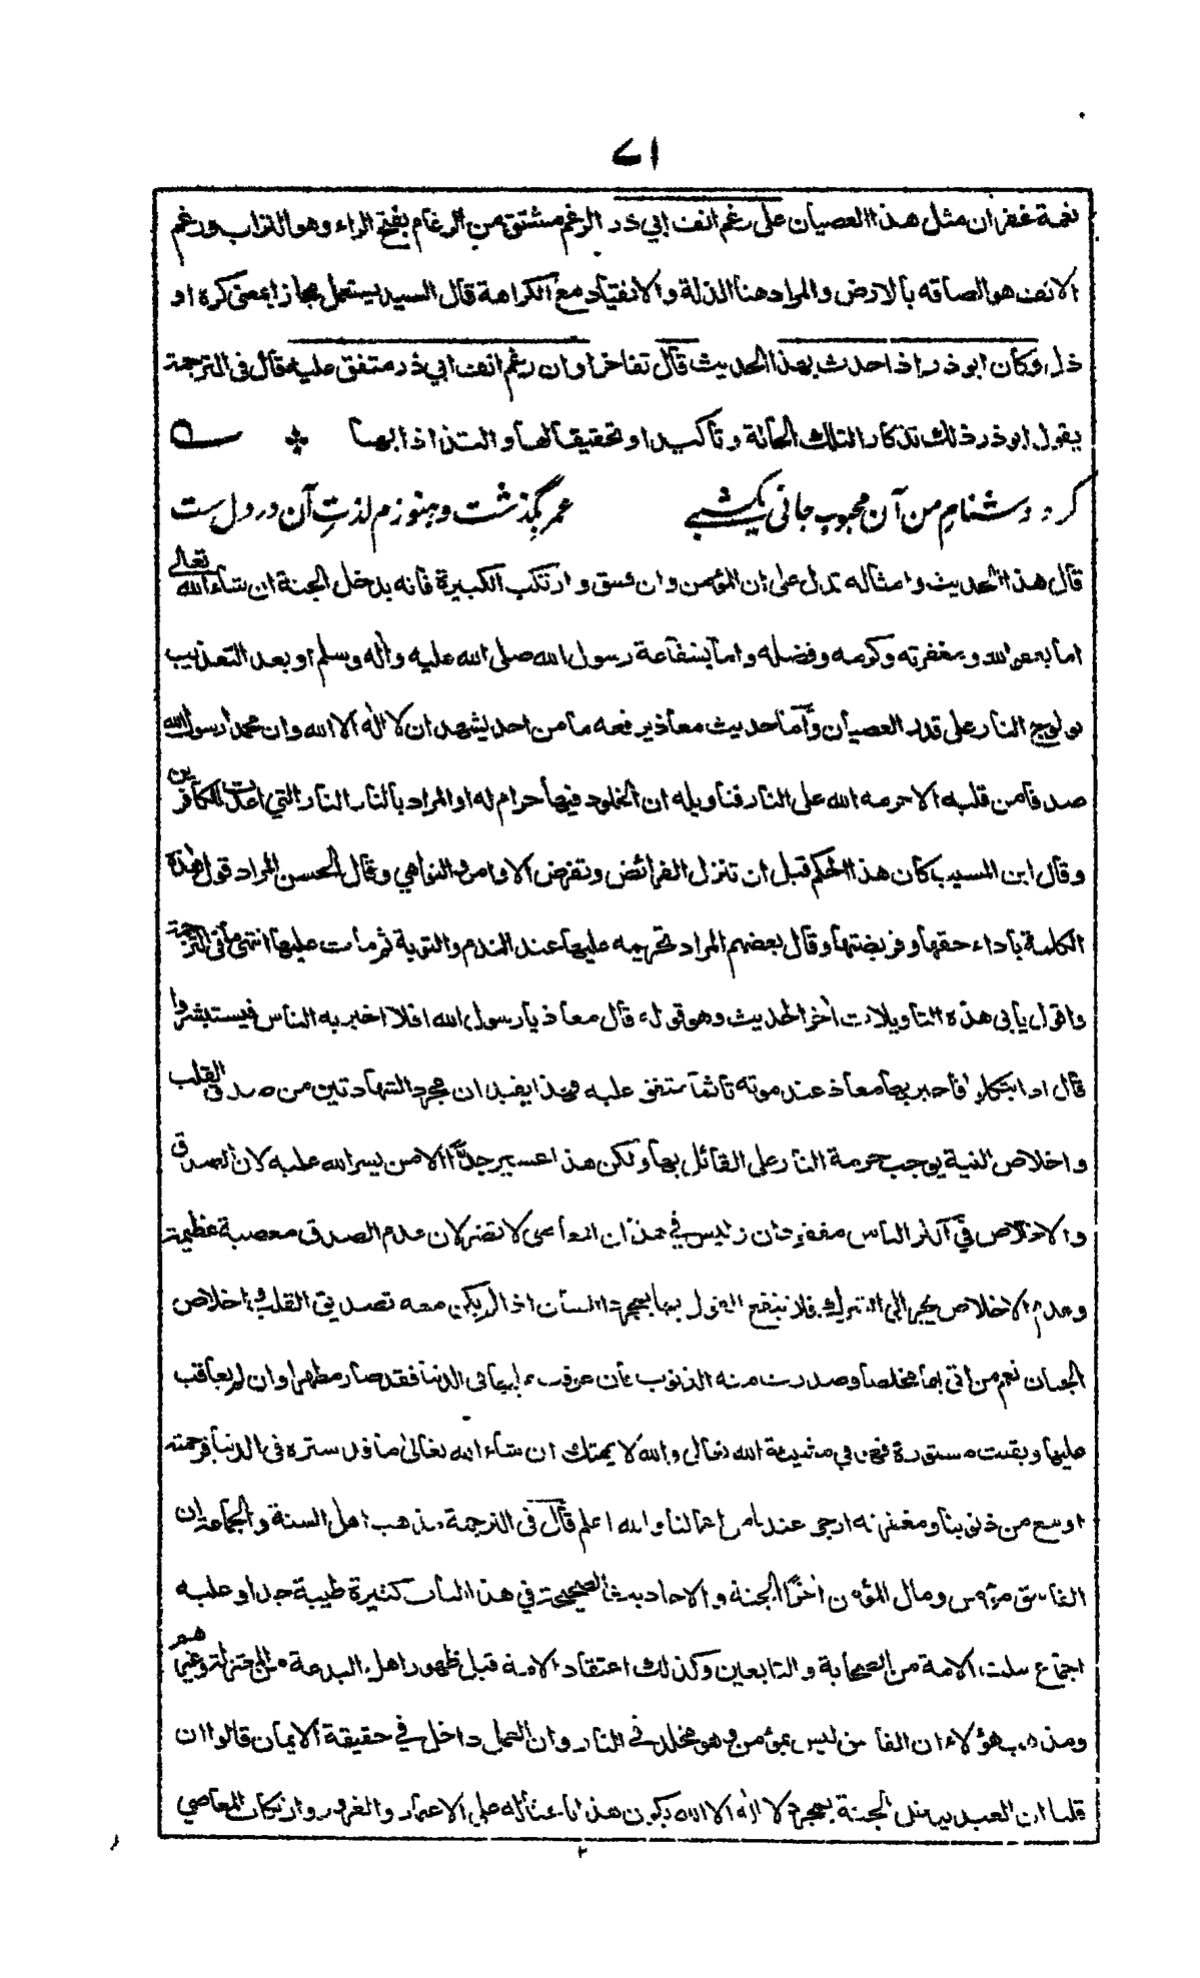 ٧١
نعمة غفران مثل هذا العصيان على رغم انف ابي ذر الرغم مشتق من الرغام بفتح الراء وهو التراب ورغم
الانف هو الصاقه بالارض والمراد هنا الذلة والانقياد مع الكراهة قال السيد يستعمل مجازا بمعنى كره او
ذل وكان ابو ذر اذا حدث بهذا الحديث قال تفاخرا وان رغم انف ابي ذر متفق عليه قال في الترجمة
يقول ابو ذر ذلك تذكارا لتلك الحالة وتاكيدا وتحقيقا لها والتذاذا بها
كرد دشنامِ من آن محبوبِ جانی یکشبے عمر بگذشت و ہنوزم لذتِ آن در دل ست
قال هذا الحديث وامثاله تدل على ان المؤمن وان فسق وارتكب الكبيرة فانه يدخل الجنة ان شاء الله تعالى
اما بعفو الله ومغفرته وكرمه وفضله واما بشفاعة رسول الله صلى الله عليه واله وسلم او بعد التعذيب
بولوج النار على قدر العصيان وأما حديث معاذ يرفعه ما من احد يشهد ان لا اله الا الله وان محمدا رسول الله
صدقا من قلبه الا حرمه الله على النار فتاويله ان الخلود فيها حرام له او المراد بالنار النار التي اعدت للكافرين
وقال ابن المسيب كان هذا الحكم قبل ان تنزل الفرائض وتفرض الاوامر والنواهي وقال الحسن المراد قول هذه
الكلمة باداء حقها وفريضتها وقال بعضهم المراد تحريمه عليها عند الندم والتوبة ثم مات عليها انتهى ما في الترجمة
واقول يابى هذه التاويلات أخر الحديث وهو قوله قال معاذ يا رسول الله افلا اخبر به الناس فيستبشروا
قال اذا يتكلوا فاخبر بها معاذ عند موته تاثما متفق عليه فهذا يفيد ان مجرد الشهادتين من صدق القلب
واخلاص النية يوجب حرمة النار على القائل بها ولكن هذا اعسير جدًّا الا من يسر الله عليه لان الصدق
والاخلاص في اكثر الناس مفقودان وليس في هذا ان المعاصي لا تضر لان عدم الصدق معصية عظيمة
وعدم الاخلاص يجر الى الشرك فلا ينفع القول بها بمجرد اللسان اذا لم يكن معه تصديق القلب واخلاص
الجنان نعم من اتى بها مخلصا وصدرت منه الذنوب فان عوقب عليها في الدنيا فقد صار مطهرا وان لم يعاقب
عليها وبقيت مستورة فهو في مشيئة الله تعالى والله لا يهتك ان شاء الله تعالى ما قد ستره في الدنيا فرحمته
اوسع من ذنوبنا ومغفرته ارجى عندنا من اعمالنا والله اعلم قال في الترجمة مذهب اهل السنة والجماعة ان
الفاسق مؤمن ومال المؤمن أخرًا الجنة والاحاديث الصحيحة في هذا الباب كثيرة طيبة جدا وعليه
اجتماع سلف الامة من الصحابة والتابعين وكذلك اعتقاد الامة قبل ظهور اهل البدعة من المعتزلة وغيرهم
ومذهب هؤلاء ان الفاسق ليس بمؤمن وهو مخلد في النار وان العمل داخل في حقيقة الايمان قالوا ان
قلنا ان العبد يدخل الجنة بمجرد لا اله الا الله يكون هذا باعثا له على الاغترار والغرور وارتكاب المعاصي